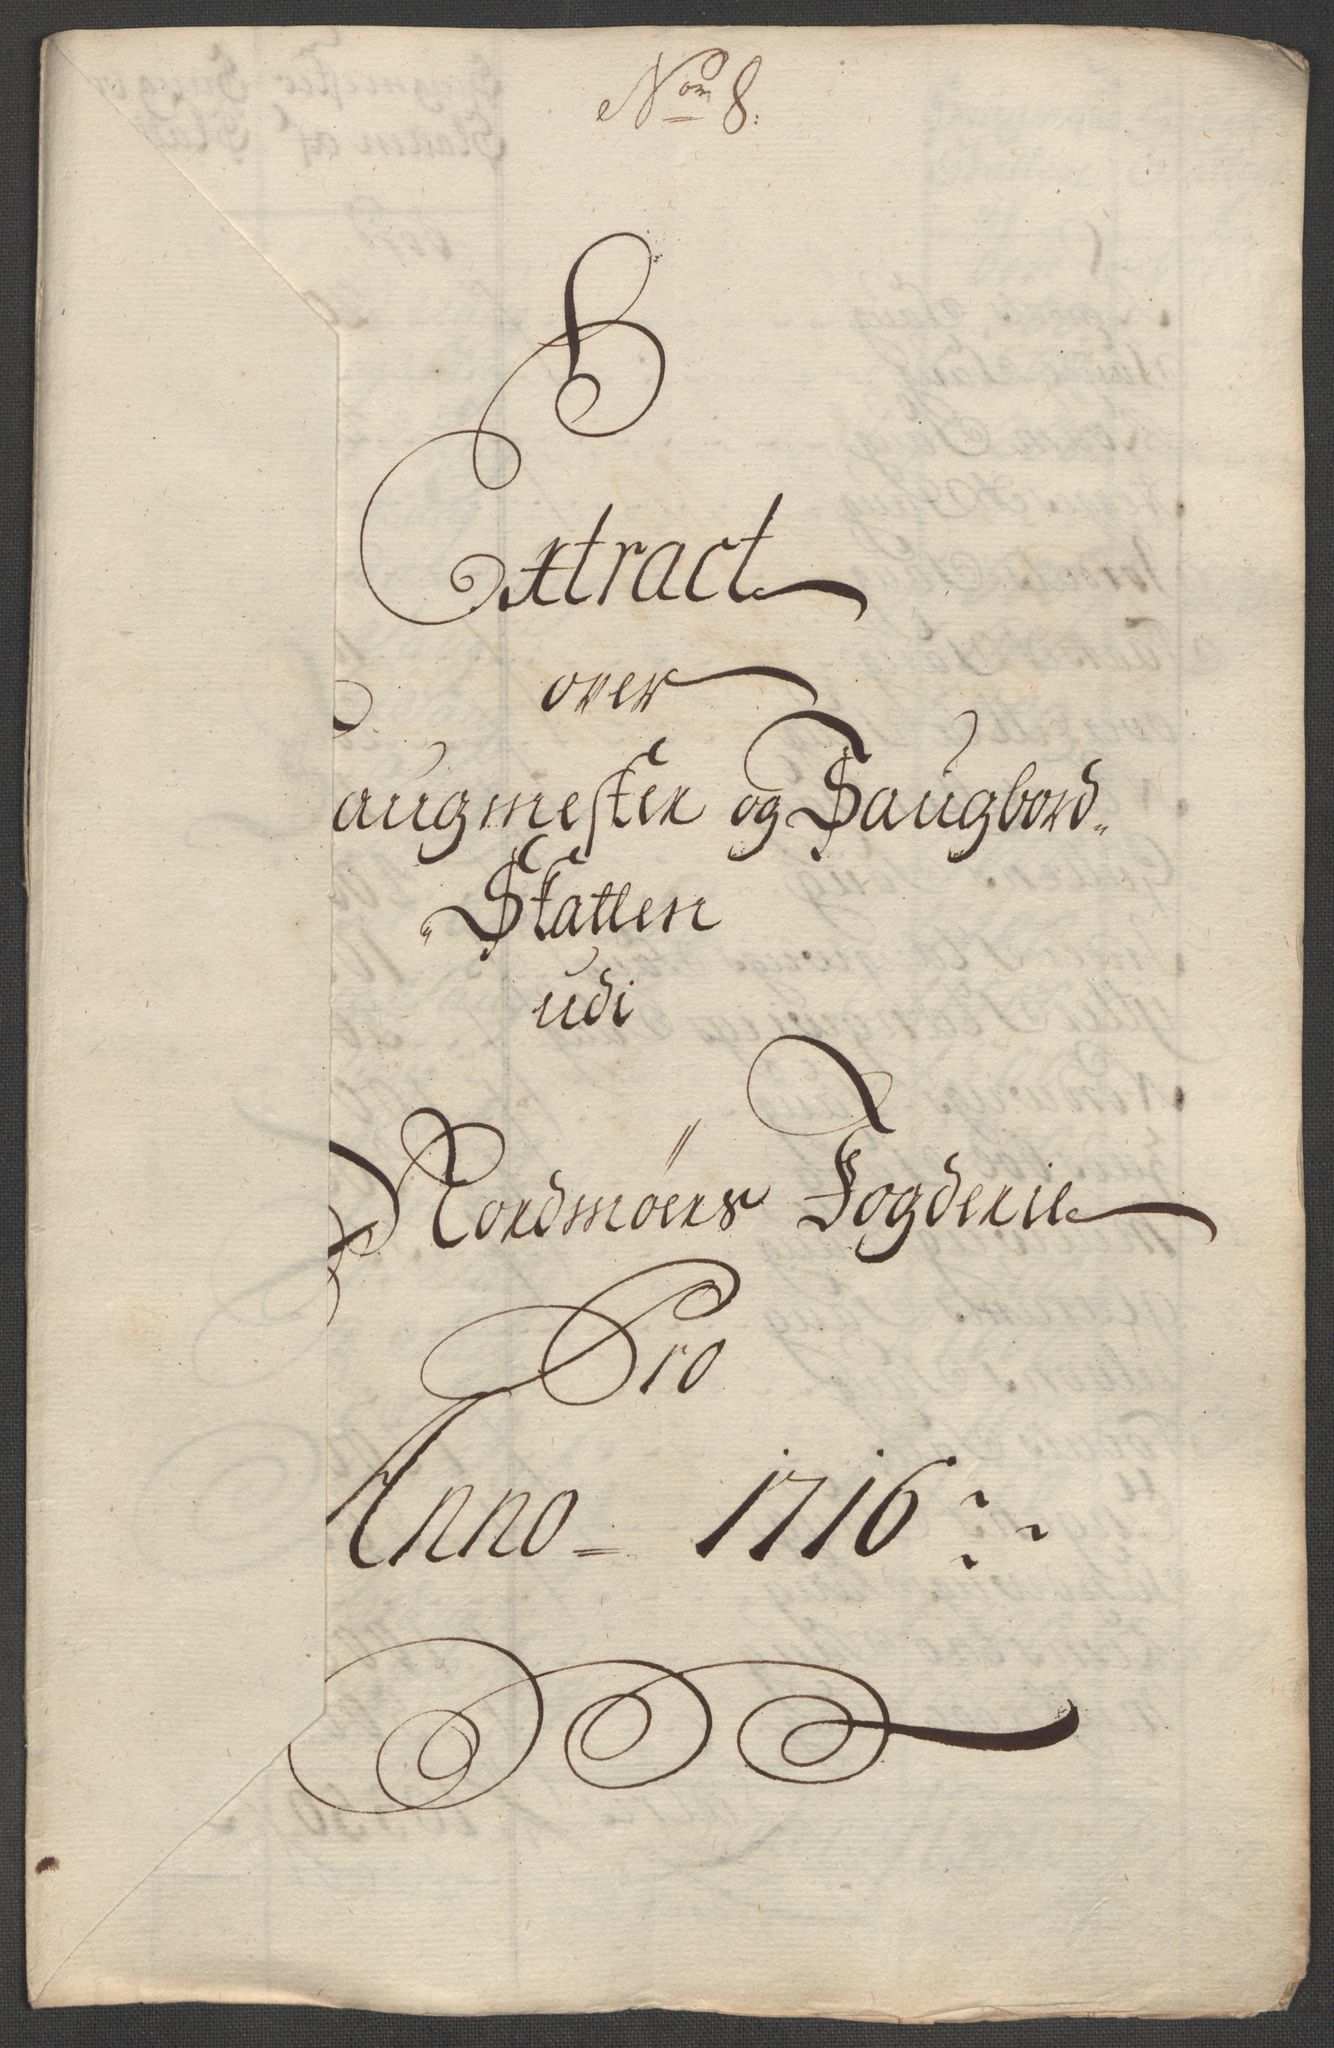 Nom 8:
Extract
over
augmester og Saugbord-
Skatten
udi
Nordmøers Fogderie
Pro
Anno 1716